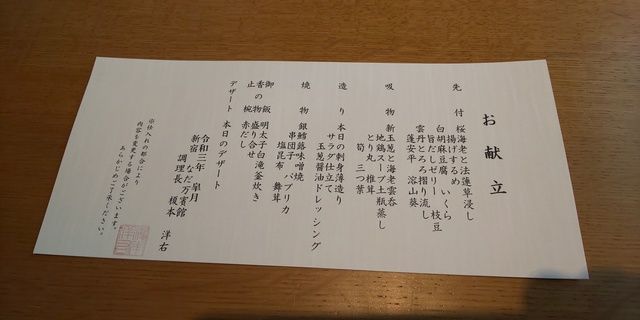 お献立
先付 桜海老と法蓮草浸し
揚げするめ
白胡麻豆腐 いくら
旨だしゼリー 枝豆
雲丹とろろ摺り流し
蓮安平 溶山葵
吸物 新玉葱と海老雲呑
地鶏スープ土瓶蒸し
とり丸 椎茸
筍 三つ葉
造り 本日の刺身薄造り
サラダ仕立て
玉葱醤油ドレッシング
焼物 銀鱈蕗味噌焼
串団子 パプリカ
塩昆布 舞茸
御飯 明太子白滝釜炊き
香の物 盛り合せ
止椀 赤だし
デザート 本日のデザート
令和三年 皐月
新宿 なだ万賓館
調理長 榎本 洋右
※仕入れの都合により
内容を変更する場合がございます。
あらかじめご了承ください。